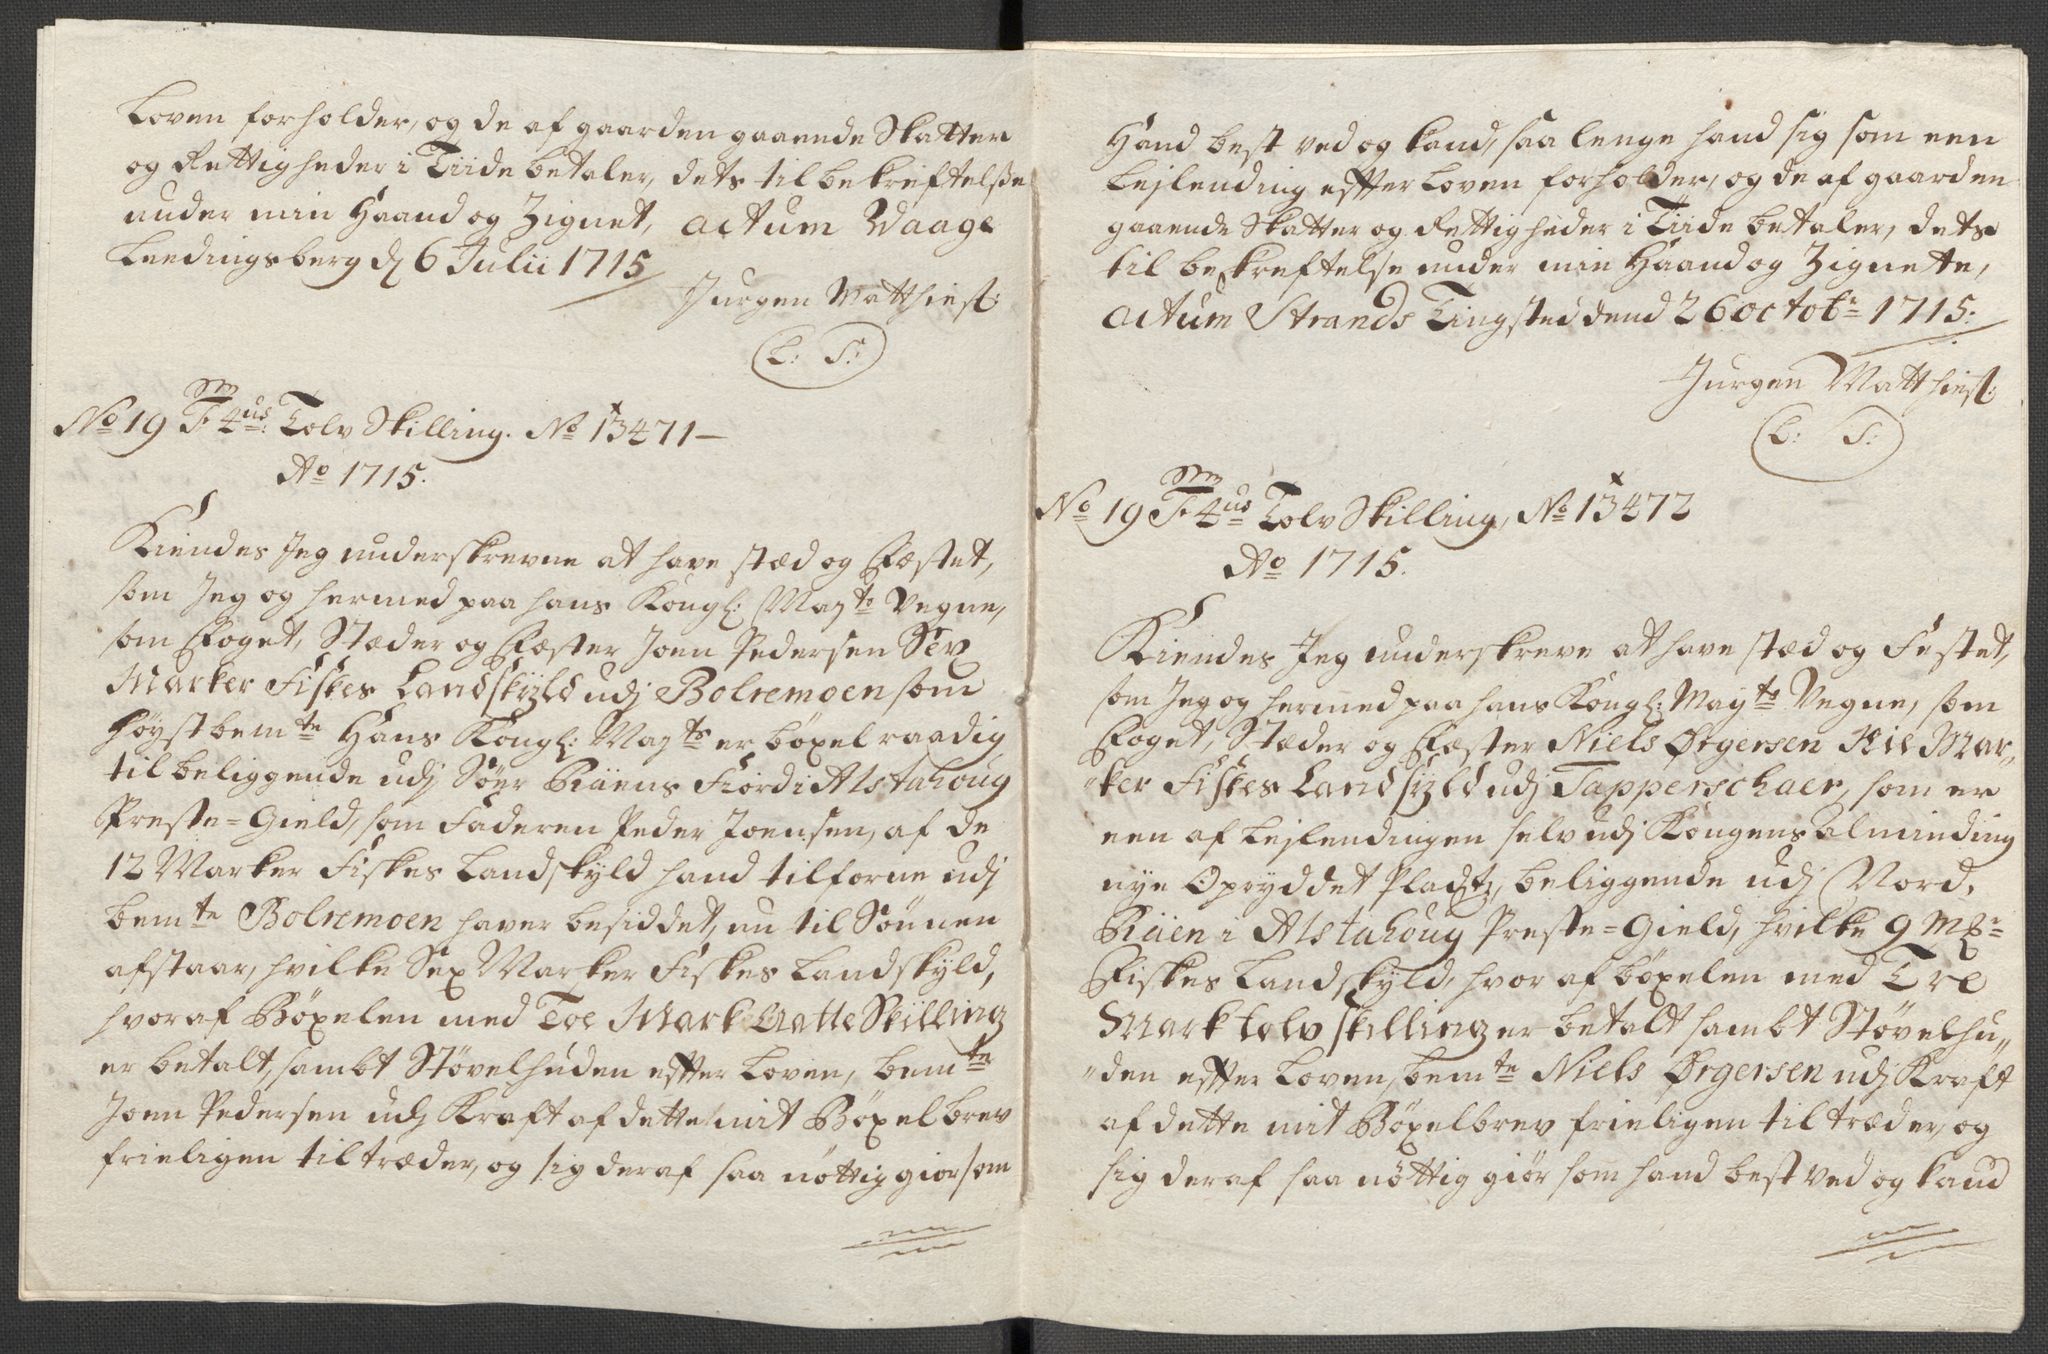 Loven forholder, og de af gaarden gaaende Skatter
og Rettigheder i Tiide betaler, dets til bekreftelsse
under min Haand og Zignet, actum Vaage
Leedingsberg d 6 Julii 1715
Jurgen Matthies:
L: S:
No 19 F. 4us. Tolv Skilling. No 13471 –
Ao 1715.
Kiendes Jeg underskrevne at have stæd og Fæstet,
som Jeg og hermed paa hans Kongl: Mayts Vegne,
som Foget, Stæder og Fæster Joen Pedersen Sex
Marker Fiskes Landskÿld udj Bolremoen som
høystbemte Hans Kongl: Mayts er böxel raadig
til beliggende udj Söer Räens Fiord i Alstahoug
Preste-Gield, som Faderen Peder Joensen, af de
12 Marker Fiskes Landskÿld hand tilforne udj
bemte Bolremoen haver besiddet, nu til Sönnen
afstaar, hvilke Sex Marker Fiskes Landskÿld,
hvoraf Böxelen med Toe Mark Aatte Skilling
er betalt, sambt Stövelhuden effter Loven, bemte
Joen Pedersen udj Kraft af dette mit Böxelbrev
frieligen tiltræder, og sig deraf saa nöttig giör som
Hand best ved og kand, saa lenge hand sig som een
Lejlending effter Loven forholder, og de af gaarden
gaaende Skatter og Rettigheder i Tiide betaler, dets
til bekreftelse under min Haand og Zignette,
actum Strands Tingsted dend 26 octobr 1715:
Jurgen Matthies:
L: S:
No 19 F. 4us Tolv Skilling, No 13472
Ao 1715.
Kiendes Jeg underskrevne at have stæd og Festet,
som Jeg og hermed paa hans Kongl: Mayts Vegne, som
Foget, Stæder og Fæster Niels Ørgersen Nie Mar-
ker Fiskes Landskÿld udj Tapperschaer, som er
een af Lejlendingen selv udj Kongens Alminding
nye Oprÿddet Pladtz, beliggende udj Nord,
Räen i Alstahoug Preste-Gield, hvilke 9 Mkr
Fiskes Landskÿld, hvor af böxelen med Tre
Mark tolv skilling er betalt sambt Stövelhu-
den effter Loven, bemte Niels Ørgersen udj Kraft
af dette mit Böxelbrev frieligen tiltræder, og
sig deraf saa nöttig giör som hand best ved og kand